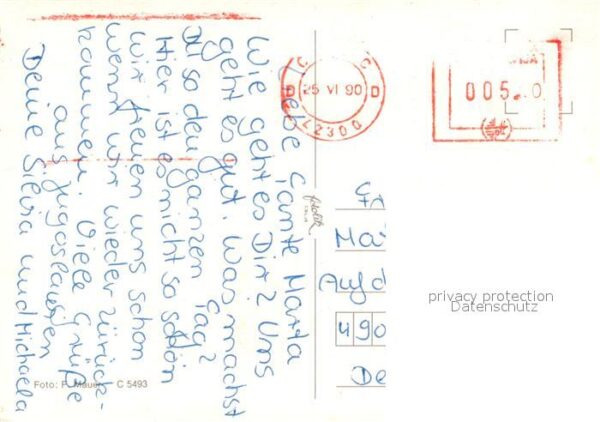 Liebe Tante Marta
Wie geht es Dir? Uns
geht es gut. Was machst
Du so den ganzen Tag?
Hier ist es nicht so schön
Wir freuen uns schon
wenn wir wieder zurück-
kommen. Viele Grüße
aus Jugoslawien
Deine Silvia und Michaela
25 VI 90
D D
42300
005. 0
Mar
Auf d
490
De
privacy protection
Datenschutz
Foto: F. Mauer C 5493